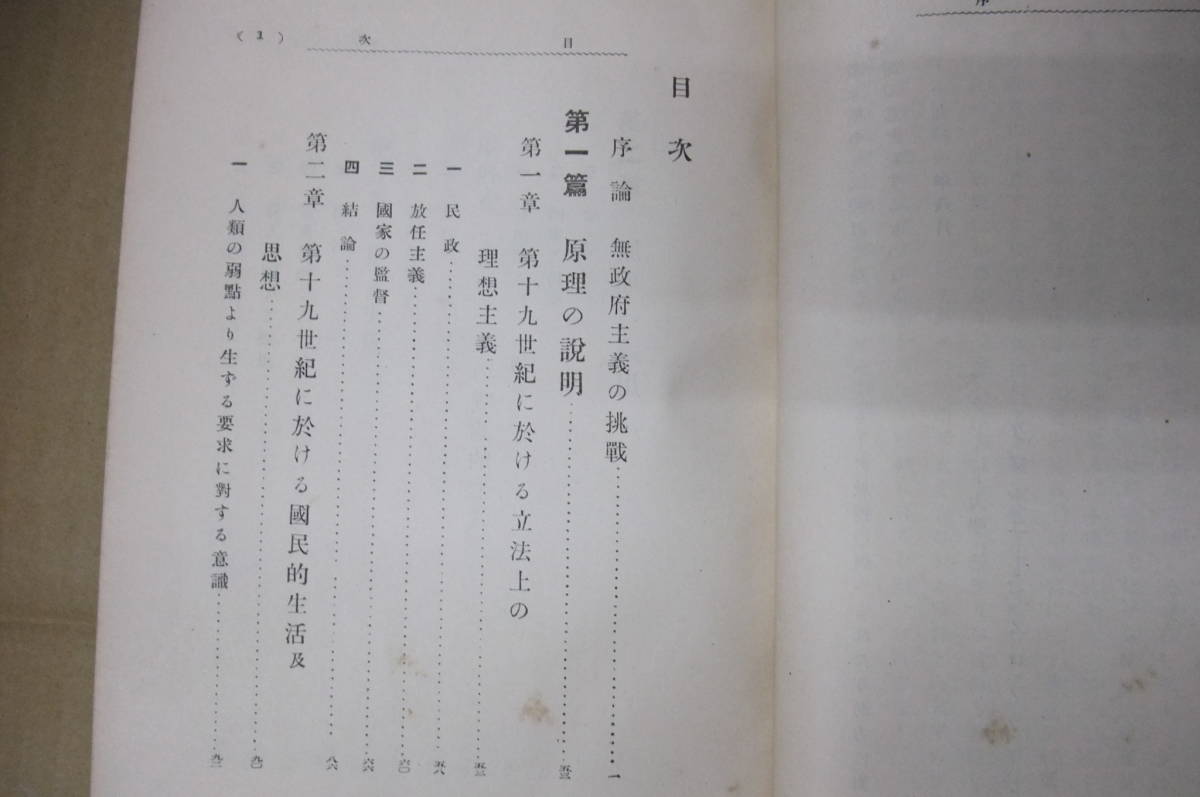 序
目次
(1)
目次
序論 無政府主義の挑戰……一
第一篇 原理の說明……五三
第一章 第十九世紀に於ける立法上の
理想主義……五三
一 民政……五八
二 放任主義……六〇
三 國家の監督……六六
四 結論……八六
第二章 第十九世紀に於ける國民的生活及
思想……九〇
一 人類の弱點より生ずる要求に對する意識……九三